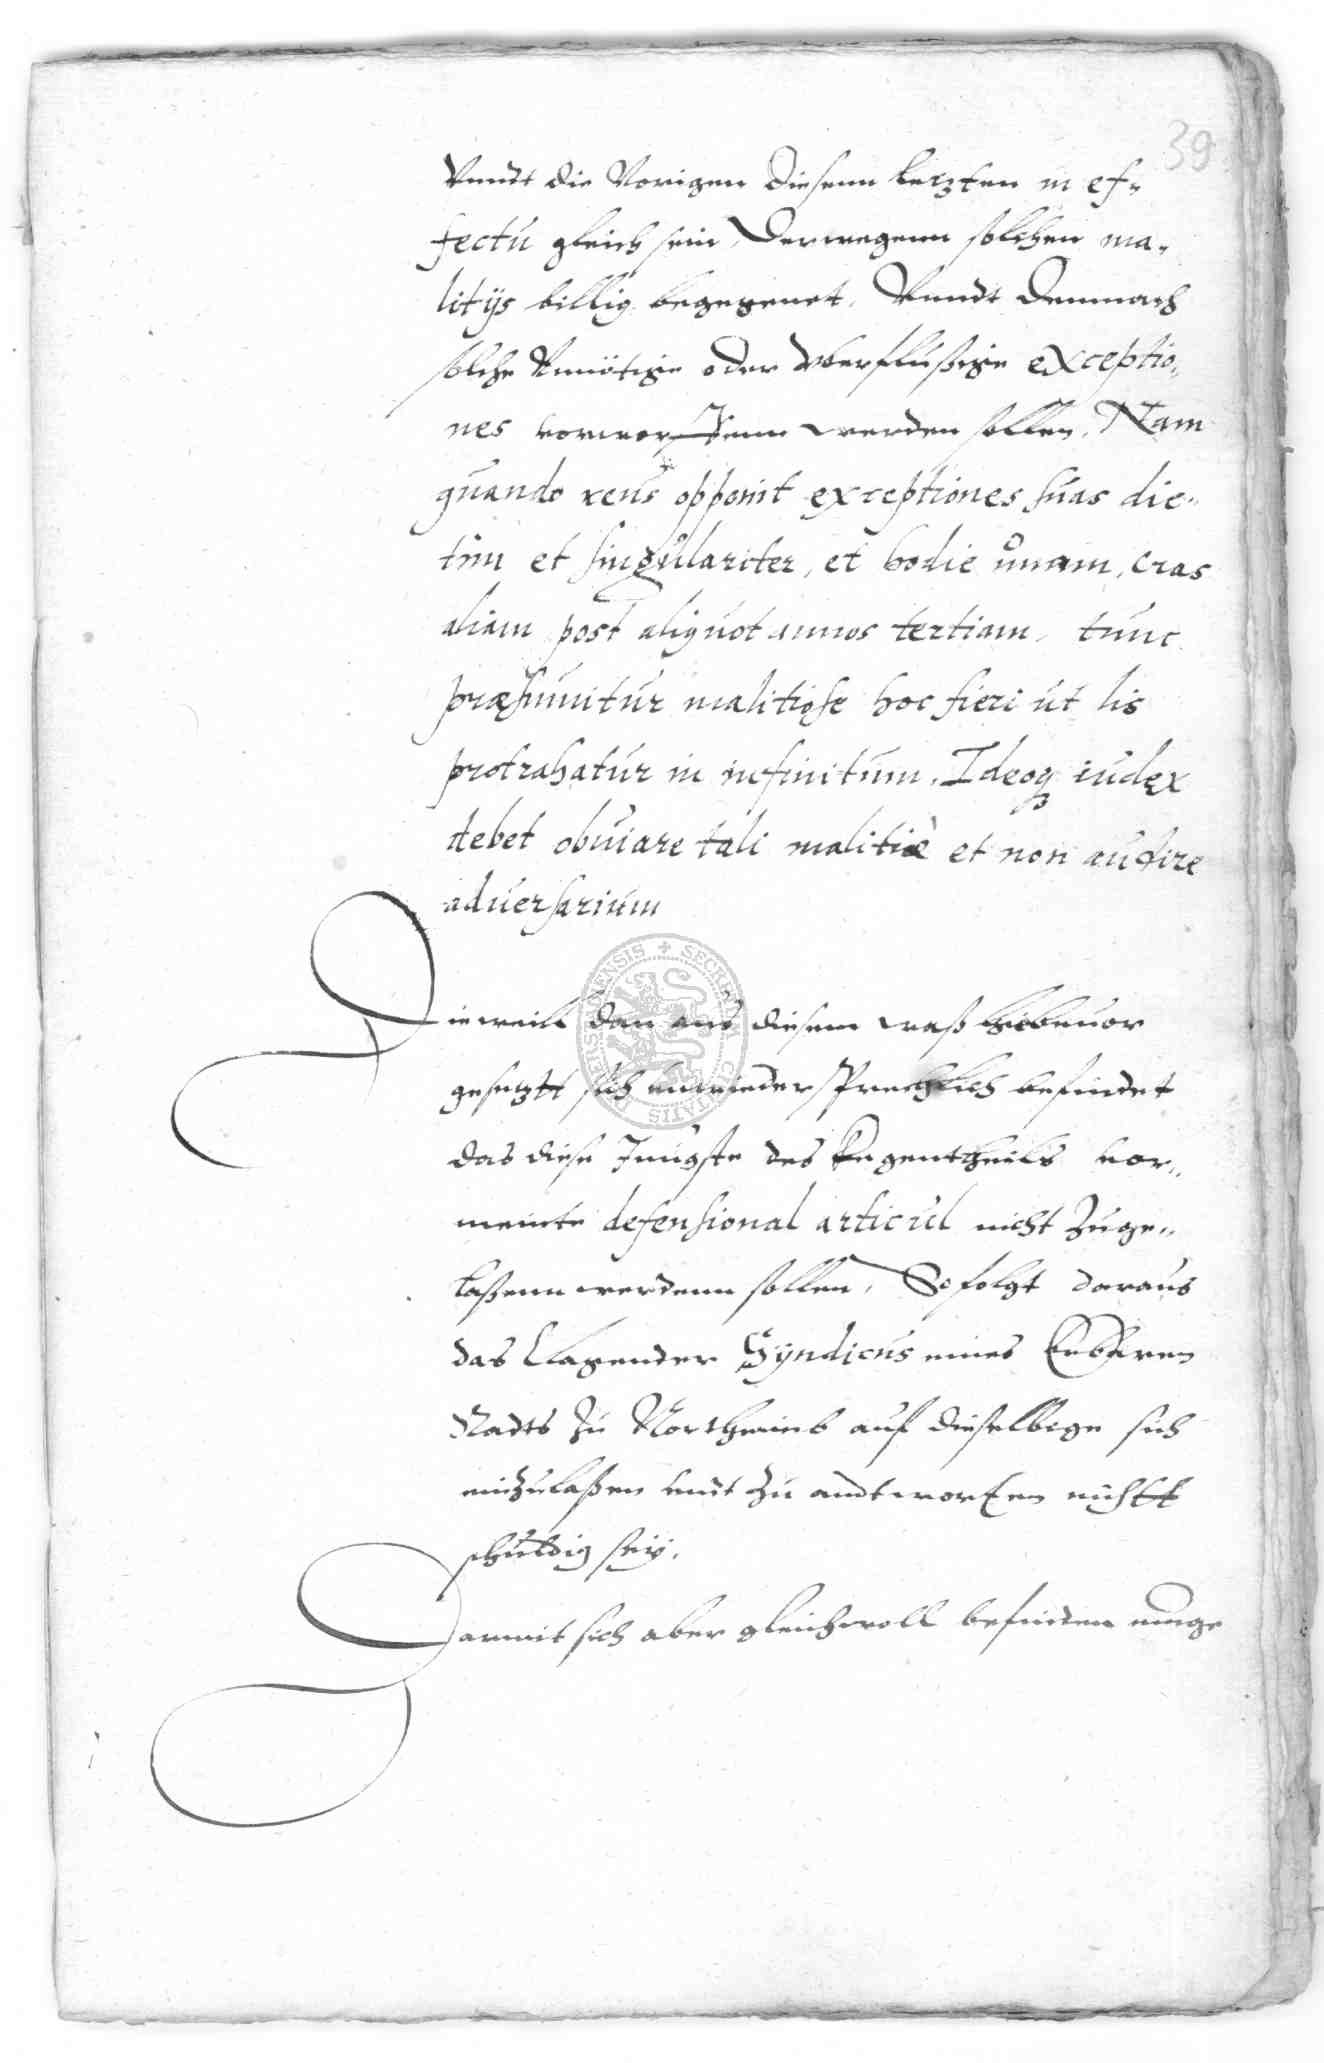 39
Vnndt die Vorigen diesenn letzten in ef=
fectu gleich sein, Derwegenn solchen ma=
litijs billig begegenet, Vnndt demnach
solche Vnnötige oder vberflußige exceptio=
nes vorworffenn werden sollen, Nam
quando reus opponit exceptiones suas die=
tim et singulariter, et hodie unam, cras
aliam post aliquot annos tertiam, tunc
præsumitur malitiose hoc fieri ut lis
protrahatur in infinitum, Ideoq iudex
debet obuiare tali malitiæ et non audire
aduersarium
Dieweill dan aus diesem waß hiebeuor
gesetztt sich unwiedersprechlich befindet
das diese Jungste des kegentheils vor=
meinte defensional articul nicht zuge=
laßenn werdenn sollen, So folgt daraus
das Clagender Syndicus eines Erbaren
Radts zu Northeimb auf dieselbege sich
einzulaßen undt zu andtworten nichtt
schuldig sey.
Darmit sich aber gleichwoll befinden muge
SECRETUM CIVITATIS